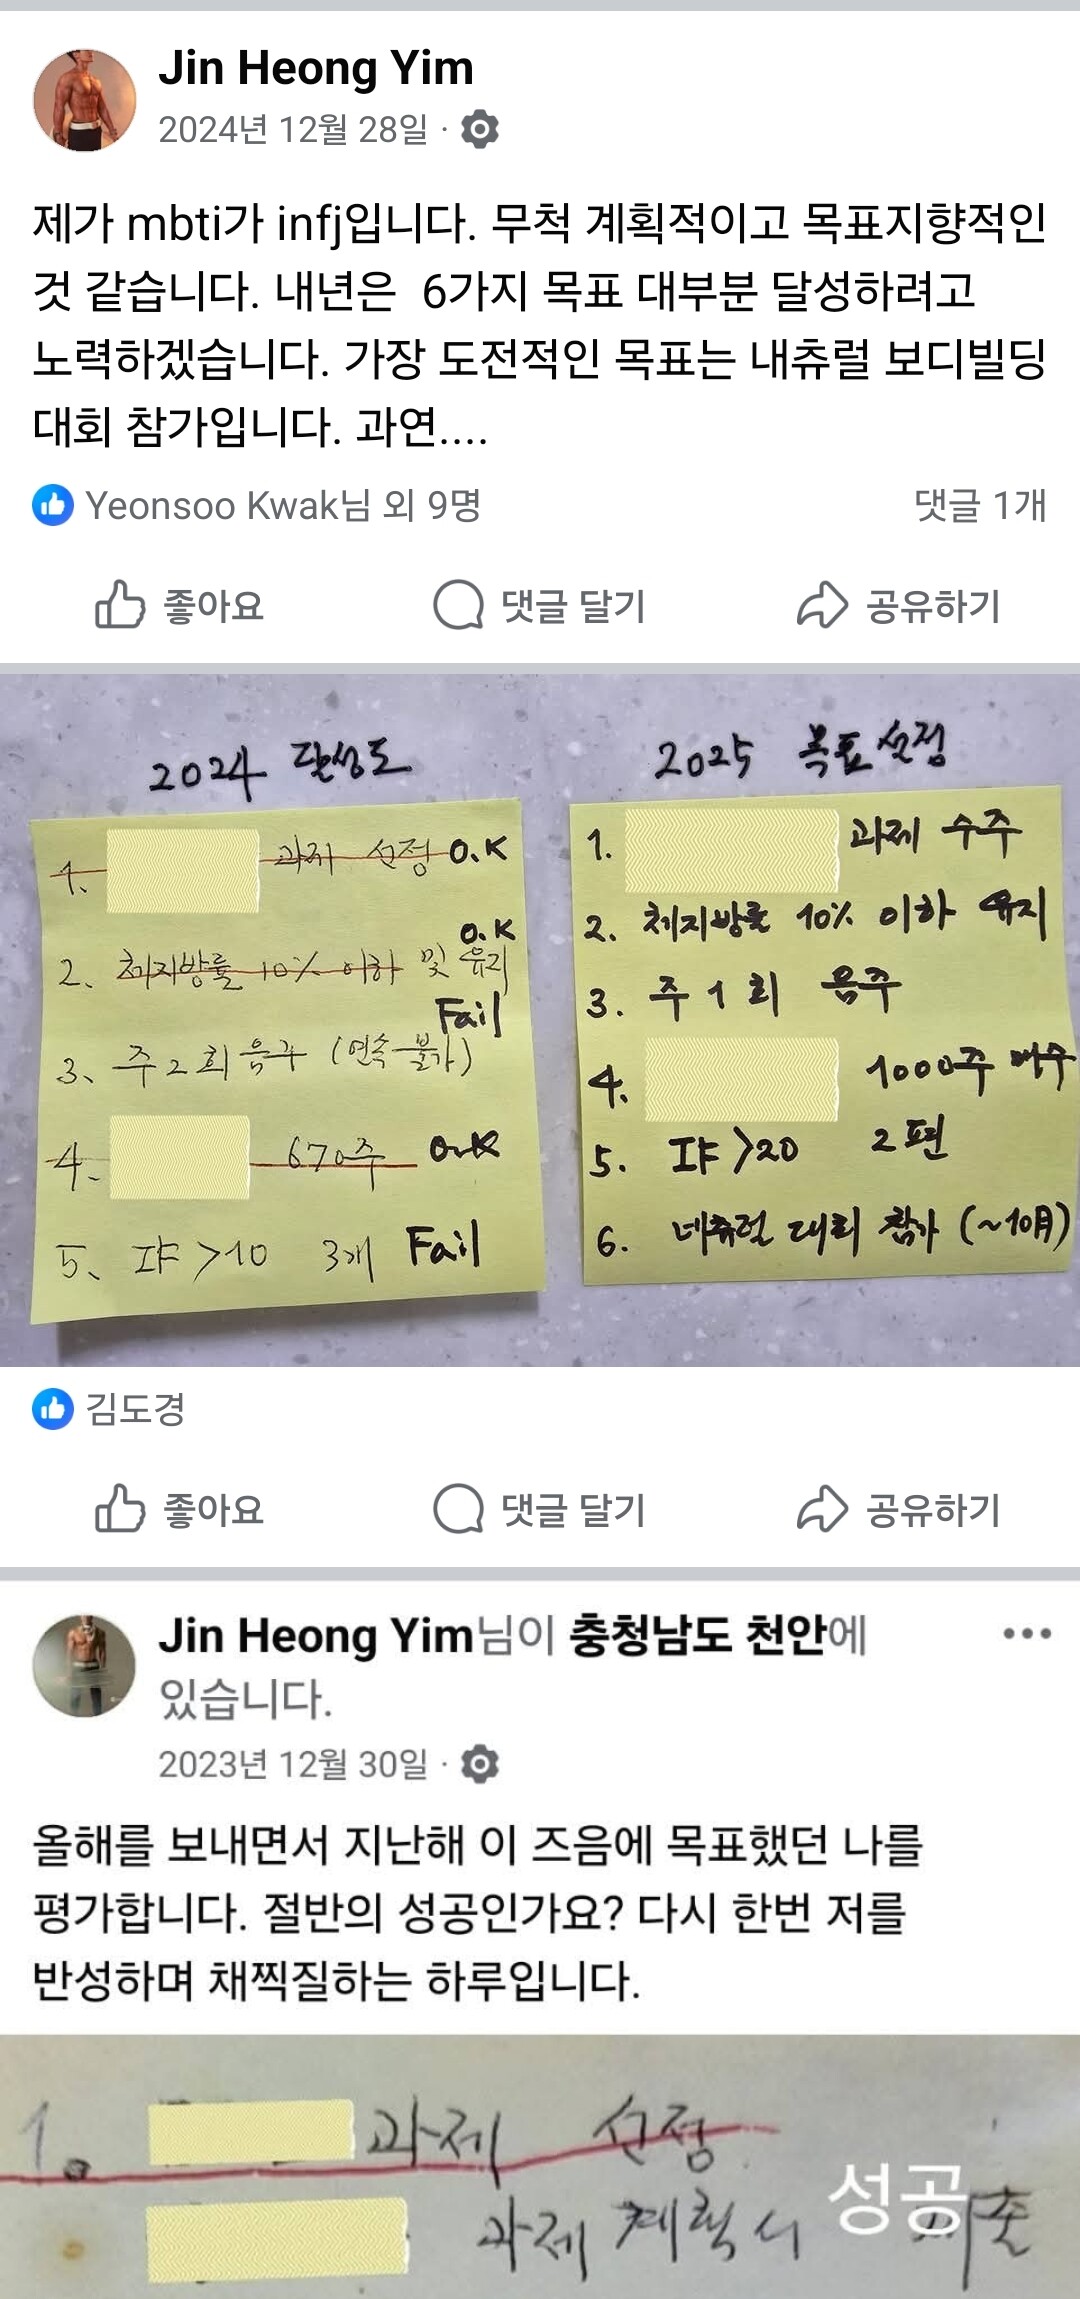 Jin Heong Yim
2024년 12월 28일 ·
제가 mbti가 infj입니다. 무척 계획적이고 목표지향적인
것 같습니다. 내년은 6가지 목표 대부분 달성하려고
노력하겠습니다. 가장 도전적인 목표는 내츄럴 보디빌딩
대회 참가입니다. 과연....
Yeonsoo Kwak님 외 9명 댓글 1개
좋아요 댓글 달기 공유하기
2024 달성도
1. 과제 선정 O.K
O.K
2. 체지방률 10% 이하 및 유지
Fail
3. 주 2회 음주 (연속 불가)
4. 670주 O.K
5. IF >10 3개 Fail
2025 목표 설정
1. 과제 수주
2. 체지방률 10% 이하 유지
3. 주 1회 음주
4. 1000주 매수
5. IF >20 2편
6. 네츄럴 대회 참가 (~10月)
김도경
좋아요 댓글 달기 공유하기
Jin Heong Yim님이 충청남도 천안에
있습니다.
2023년 12월 30일 ·
올해를 보내면서 지난해 이 즈음에 목표했던 나를
평가합니다. 절반의 성공인가요? 다시 한번 저를
반성하며 채찍질하는 하루입니다.
1. 과제 선정
성공
과제 계획서